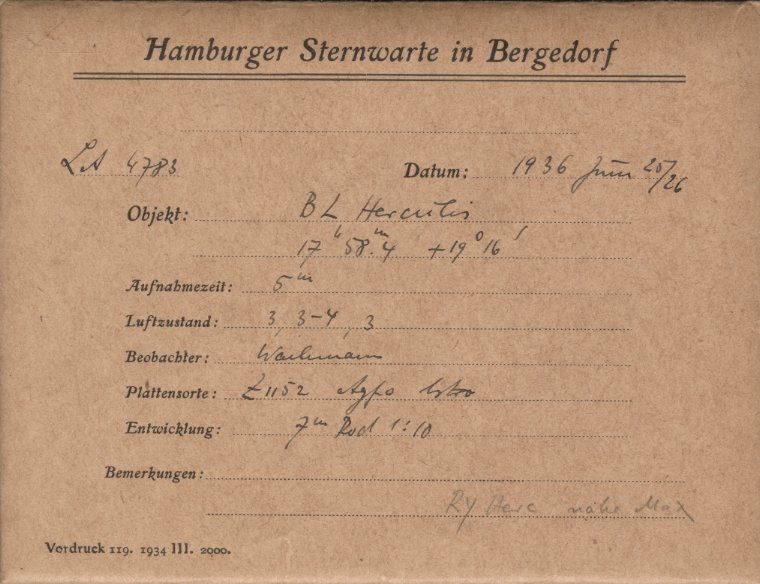 Hamburger Sternwarte in Bergedorf
LA 4783 Datum: 1936 Juni 25/26
Objekt: BL Herculis
17ʰ 58ᵐ.4 +19° 16'
Aufnahmezeit: 5ᵐ
Luftzustand: 3, 3-4, 3
Beobachter: Wachmann
Plattensorte: Z1152 Agfa Astro
Entwicklung: 7ᵐ Rod 1:10
Bemerkungen:
RY Herc nahe Max
Vordruck 119. 1934 III. 2000.